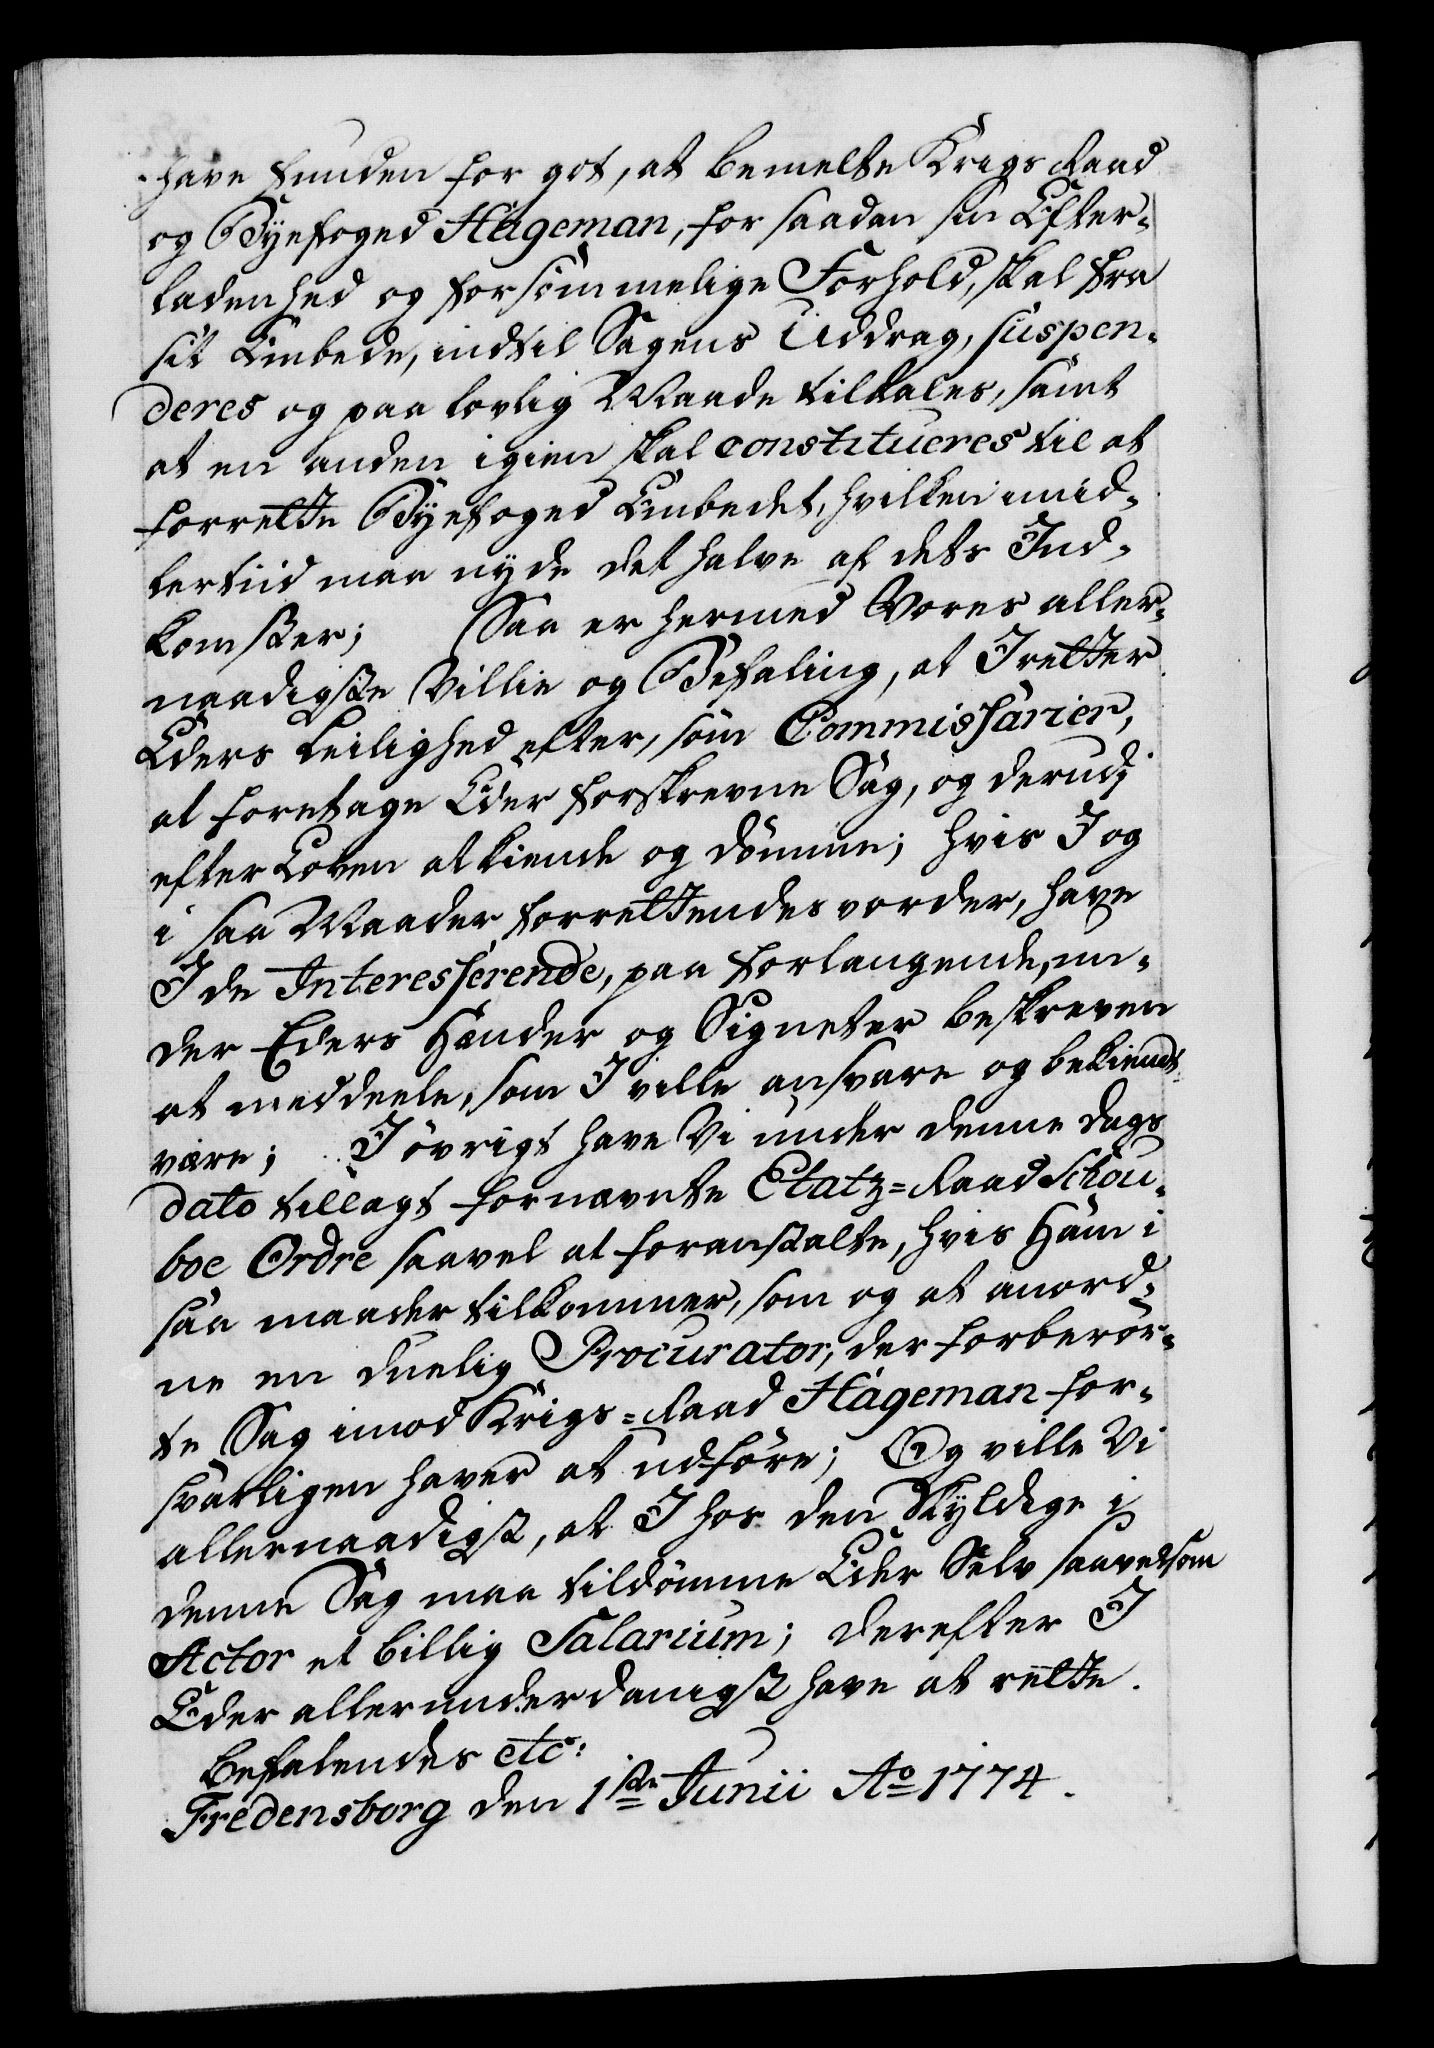 have funden for got, at bemelte Krigs Raad
og Byefoged Hageman, for saadan sin Efter-
ladenhed og forsömmelige Forhold, skal fra
sit Embede, indtil Sagens Uddrag, suspen-
deres og paa lovlig Maade tiltales, samt
at en anden igien skal constitueres til at
forrette Byefoged Embedet, hvilken imid-
lertiid maa nyde det halve af dets Ind-
komster; Saa er hermed Vores aller-
naadigste Villie og Befaling, at I retter
Eders Leilighed efter, som Commissarier,
at foretage Eder forskrevne Sag, og derudj
efter Loven at kiende og dömme; hvis I og
i saa Maader forrettendes vorder, have
I de Interesserende, paa forlangende, un-
der Eders Hænder og Signeter beskreven
at meddeele, som I ville ansvare og bekiendt
være; I övrigt have Vi under denne Dags
dato tillagt fornævnte Etatz=Raad Schou-
boe Ordre saavel at foranstalte, hvis Ham i
saa maader tilkommer, som og at anord-
ne en duelig Procurator, der forberör-
te Sag imod Krigs=Raad Hageman for-
svarligen haver at udföre; Og ville Vi
allernaadigst, at I hos den Skyldige i
denne Sag maa tildömme Eder Selv saavelsom
Actor et billig Salarium; Derefter I
Eder allerunderdanigst have at rette.
Befalendes etc:
Fredensborg den 1ste Junii Ao 1774.